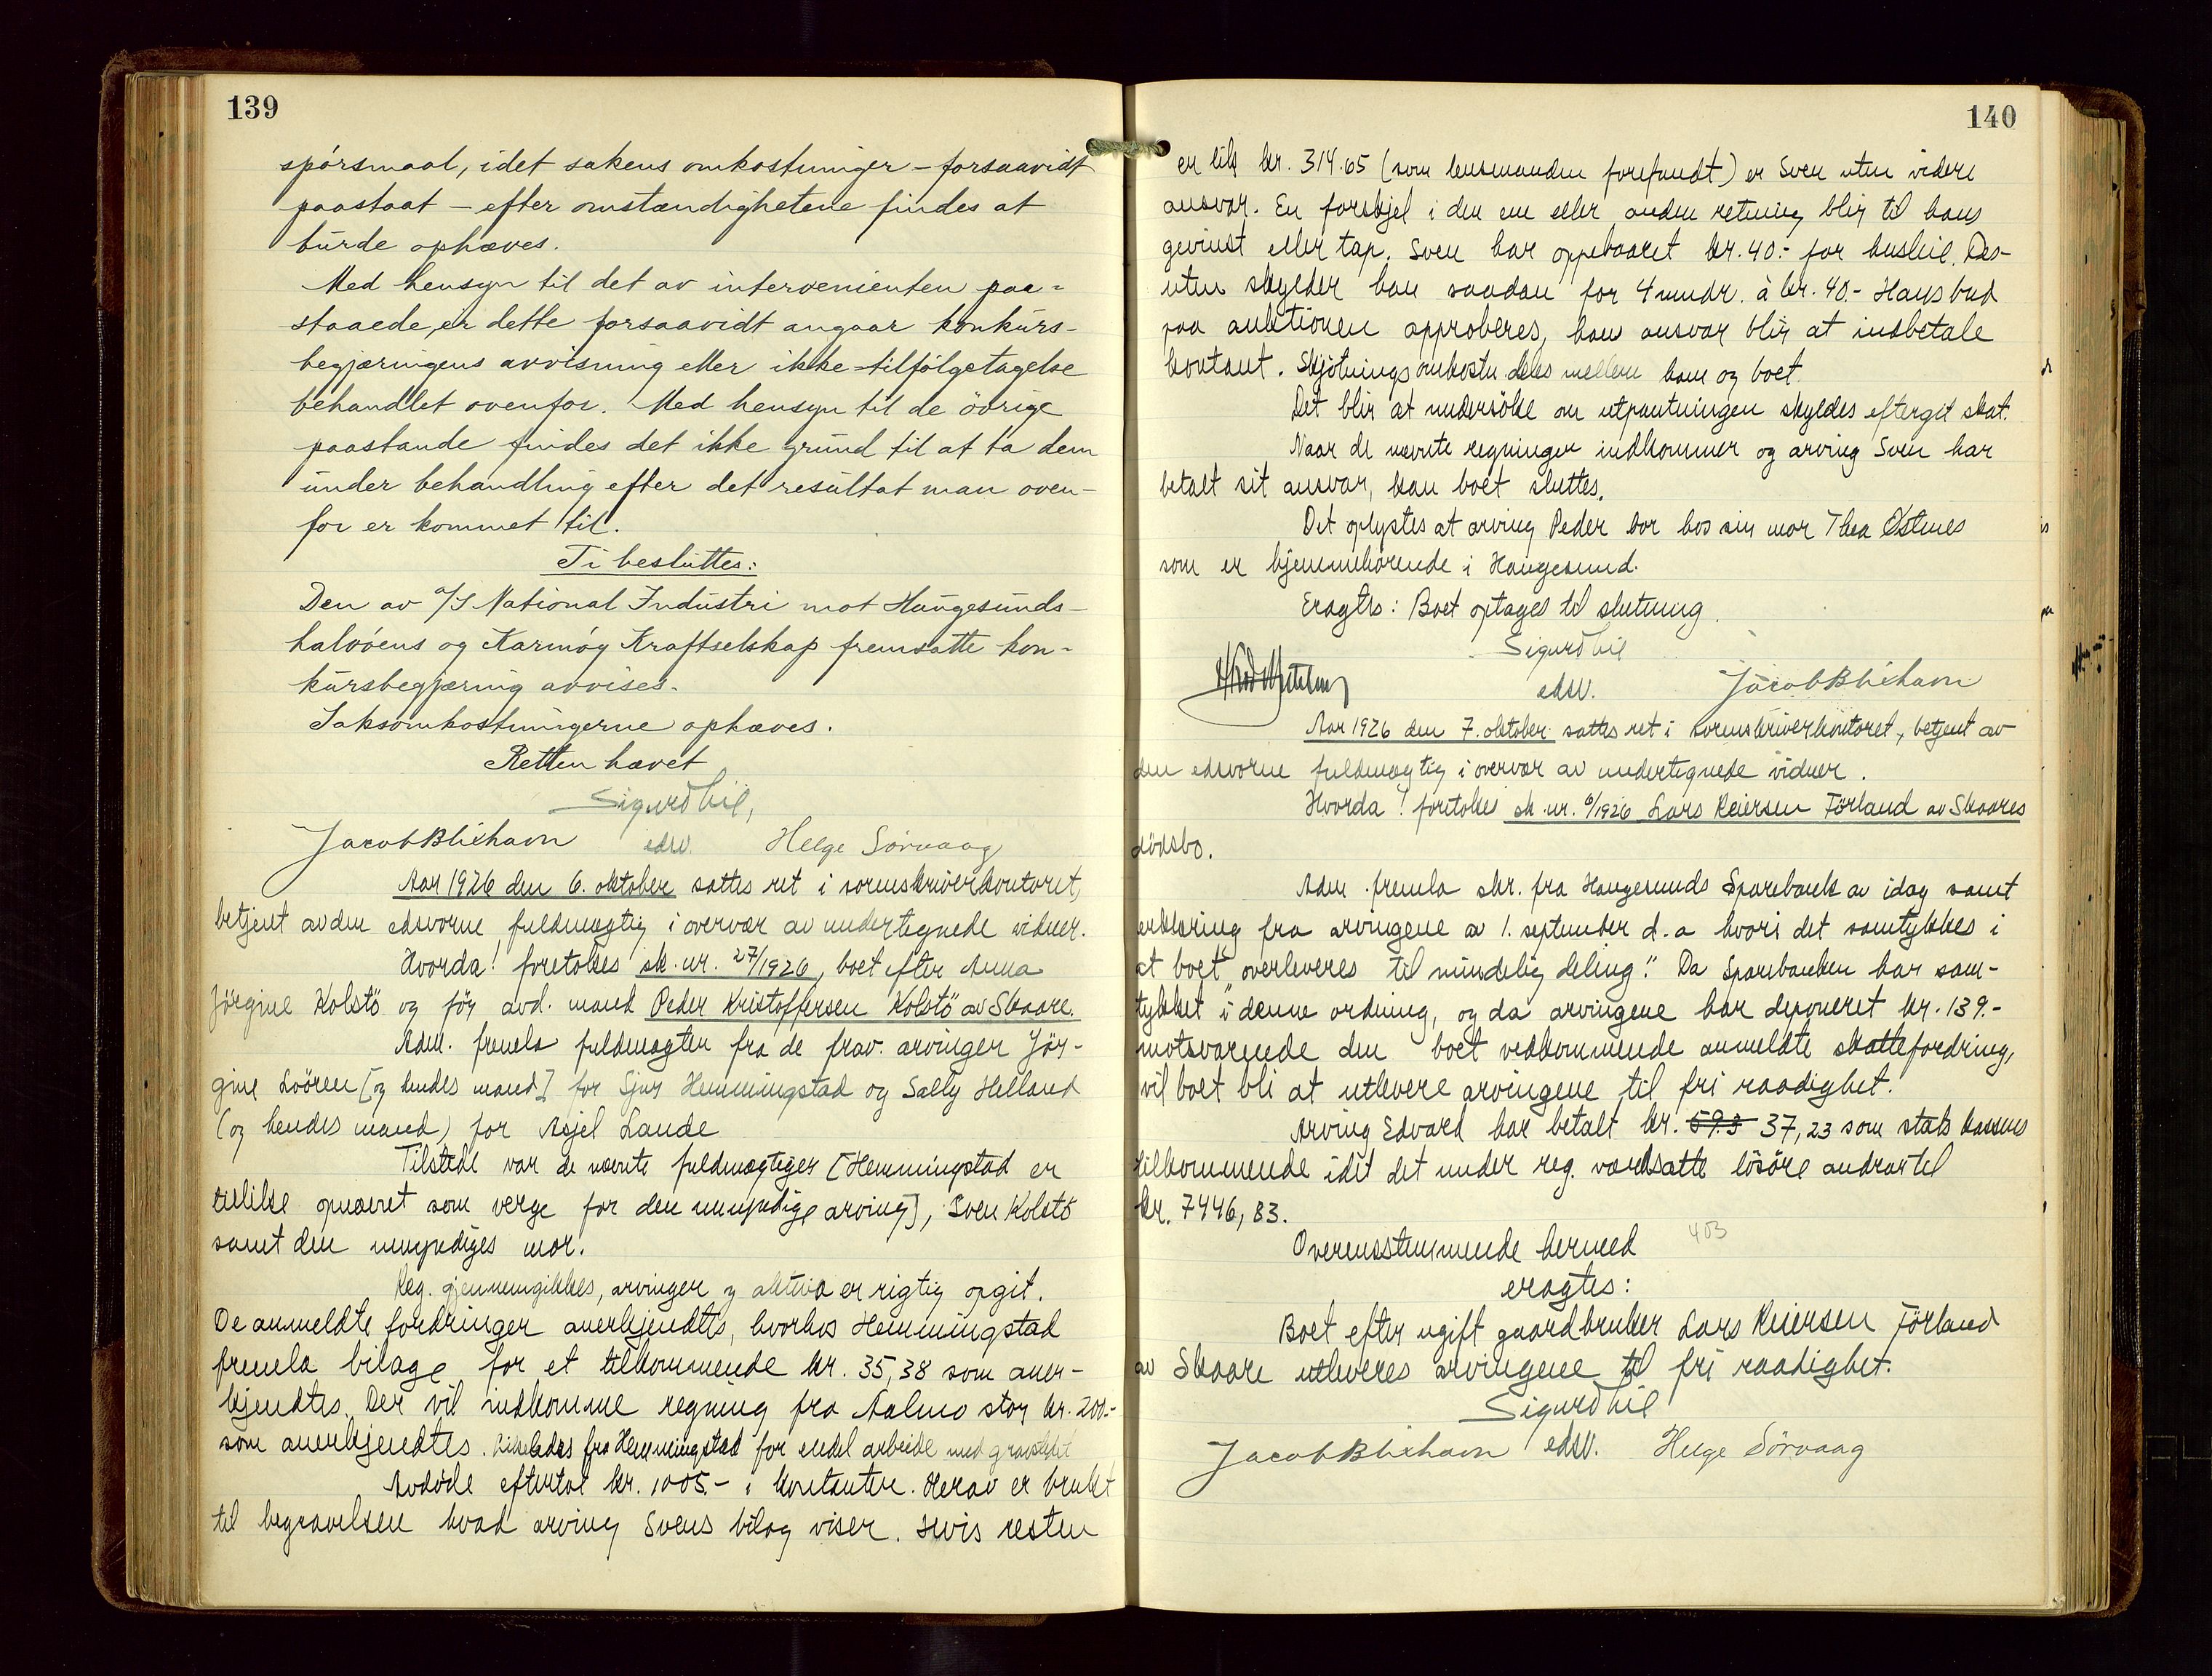 139
spörsmaal, idet sakens omkostninger – forsaavidt
paastaat – efter omstændighetene findes at
burde ophæves.
Med hensyn til det av intervenienten paa=
staaede, er dette forsaavidt angaar konkurs-
begjæringens avvisning eller ikke-tilfölgetagelse
behandlet ovenfor. Med hensyn til de övrige
paastande findes det ikke grund til at ta dem
under behandling efter det resultat man oven-
for er kommet til.
Ti besluttes:
Den av a/s National Industri mot Haugesunds-
halvöens og Karmöy Kraftselskap fremsatte kon-
kursbegjæring avvises.
Saksomkostningerne ophæves.
Retten hævet
Sigurd Eie,
Jacob Blixhavn edsv. Helge Sörvaag
Aar 1926 den 6. oktober sattes ret i sorenskriverkontoret,
betjent av den edsvorne fuldmægtig i overvær av undertegnede vidner.
Hvorda! foretokes sk. nr. 27/1926, boet efter Anna
Jörgine Kolstö og för avd. mand Peder Kristoffersen Kolstö av Skaare.
Adm. fremla fuldmagter fra de frav. arvinger Jör-
gine Löören [og hendes mand] for Sjur Hemmingstad og Sally Helland
(og hendes mand) for Asjel Lande
Tilstede var de nævnte fuldmægtiger [Hemmingstad er
tillike opnævnt som verge for den umyndige arving], Sven Kolstö
samt den umyndiges mor.
Reg. gjennemgikkes, arvinger og aktiva er rigtig opgit.
De anmeldte fordringer anerkjendtes, hvorhos Hemmingstad
fremla bilage for et tilkommende kr. 35,38 som aner-
kjendtes. Der vil indkomme regning fra Aalmo stor kr. 200.-
som anerkjendtes. Likeledes fra Hemmingstad for endel arbeide med gravstedet
Avdöde efterlot kr. 1005.- i kontanter. Herav er brukt
til begravelsen hvad arving Svens bilag viser. Hvis resten
140
er lik kr. 314.65 (som lensmanden forefandt) er Sven uten videre
ansvar. En forskjel i den ene eller anden retning blir til hans
gevinst eller tap. Sven har oppebaaret kr. 40.- for husleie. Des-
uten skylder han saadan for 4 mndr. à kr. 40.- Hans bud
paa auktionen approberes, hans ansvar blir at indbetale
kontant. Skjötningsomkostn deles mellem ham og boet.
Det blir at undersöke om utpantningen skyldes eftergit skat.
Naar de nævnte regninger indkommer og arving Sven har
betalt sit ansvar, kan boet sluttes.
Det oplystes at arving Peder bor hos sin mor Thea Östnes
som er hjemmehörende i Haugesund.
Eragtes: Boet optages til slutning.
Sigurd Eie
edsv. Jacob Blixhavn
Aar 1926 den 7. oktober sattes ret i sorenskriverkontoret, betjent av
den edsvorne fuldmægtig i overvær av undertegnede vidner.
Hvorda! foretokes sk. nr. 6/1926 Lars Reiersen Förland av Skaares
dödsbo.
Adm. fremla skr. fra Haugesunds Sparebank av idag samt
erklæring fra arvingene av 1. september d. a hvori det samtykkes i
at boet "overleveres til mindelig deling." Da Sparebanken har sam-
tykket i denne ordning, og da arvingene har deponeret kr. 139.-
motsvarende den boet vedkommende anmeldte skattefordring,
vil boet bli at utlevere arvingene til fri raadighet.
Arving Edvard har betalt kr. 59.3 37,23 som statskassens
tilkommende idet det under reg. værdsatte lösöre andrar til
kr. 7446,83.
Overensstemmende hermed 403
eragtes:
Boet efter ugift gaardbruker Lars Reiersen Förland
av Skaare utleveres arvingene til fri raadighet.
Sigurd Eie
Jacob Blixhavn edsv. Helge Sörvaag